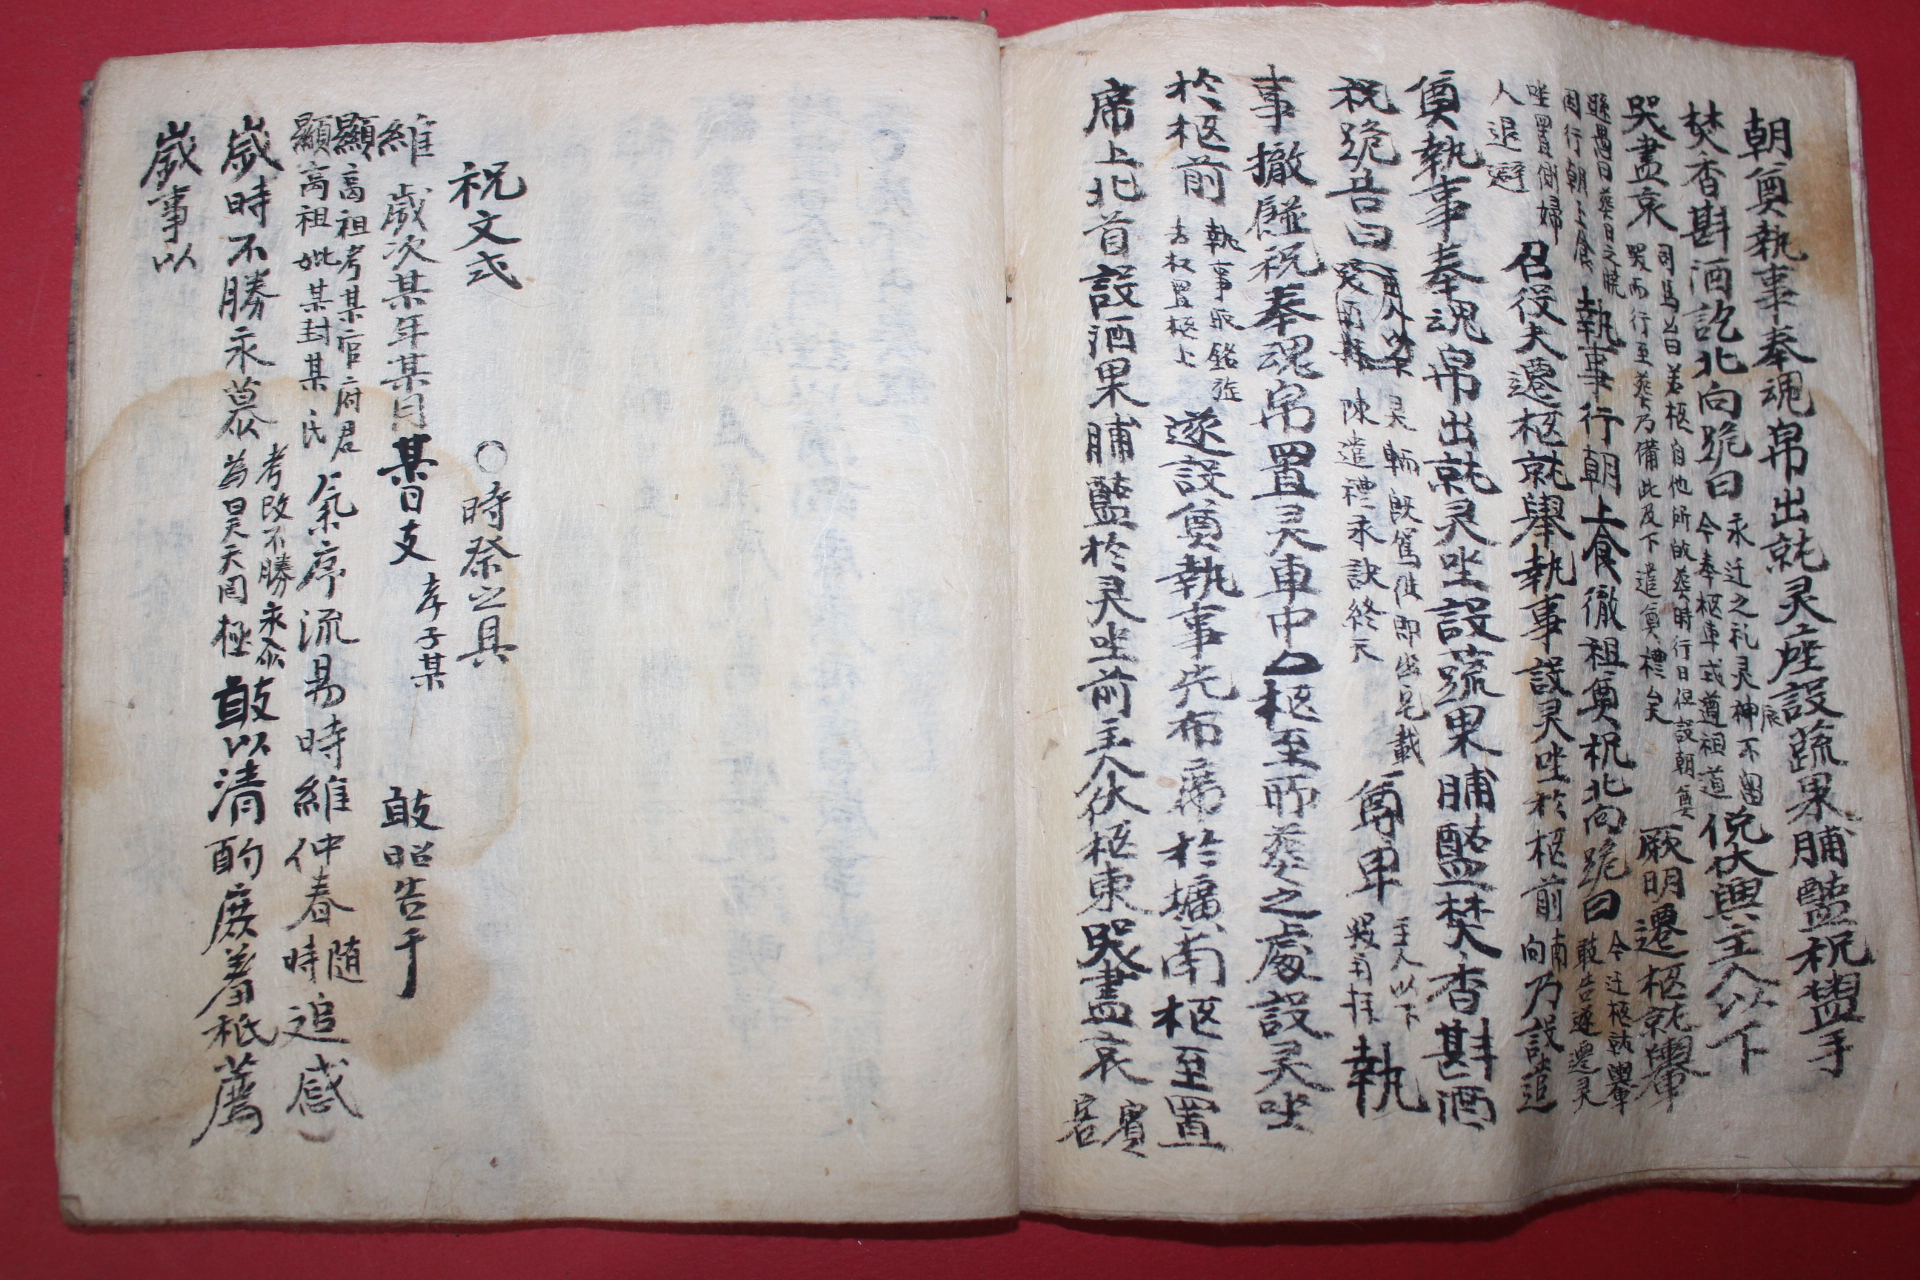 朝奠執事奉魂帛出就灵座設蔬果脯醢祝盥手
焚香斟酒訖北向跪曰 永迁之礼灵神不留
今奉柩車式遵祖道 俛伏興主人以下
哭盡哀 司馬公曰若柩自他所故葬時行日但設朝奠
哭而行至葬乃備此及下遣奠禮矣 厥明遷柩就轝
發引日葬日之晩
因行朝上食 執事行朝上食徹祖奠祝北向跪曰 今迁柩就轝
敢告遂遷灵
坐置側婦
人退避 召役夫遷柩就轝執事設灵坐於柩前 南向 乃設遣
奠執事奉魂帛出就灵坐設蔬果脯醢焚香斟酒
祝跪告曰 灵輀旣駕徃即幽宅載
陳遣禮永訣終天 尊卑 主人以下
哭再拜 執
事撤饌祝奉魂帛置灵車中 柩至所葬之處設灵坐
於柩前 執事取銘旌
去杠置柩上 遂設奠執事先布席於壙南柩至置
席上北首設酒果脯醢於灵坐前主人伏柩東哭盡哀 賓客
祝文式 ○時祭之具
維 歲次某年某月某日支 孝子某 敢昭告于
顯高祖考某官府君
顯高祖妣某封某氏 氣序流易時維仲春 隨時 追感
歲時不勝永慕 考改不勝永慕
為昊天罔極 敢以清酌庶羞祗薦
歲事以